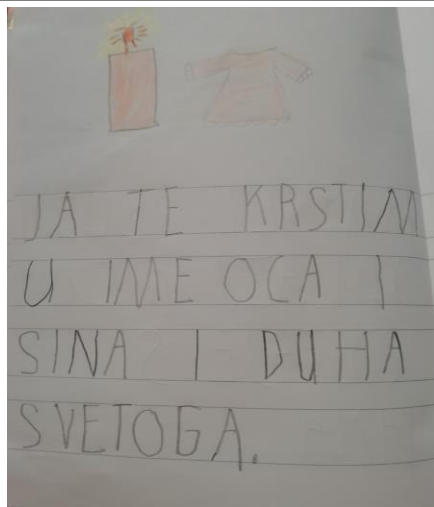 JA TE KRSTIM
U IME OCA I
SINA I DUHA
SVETOGA.